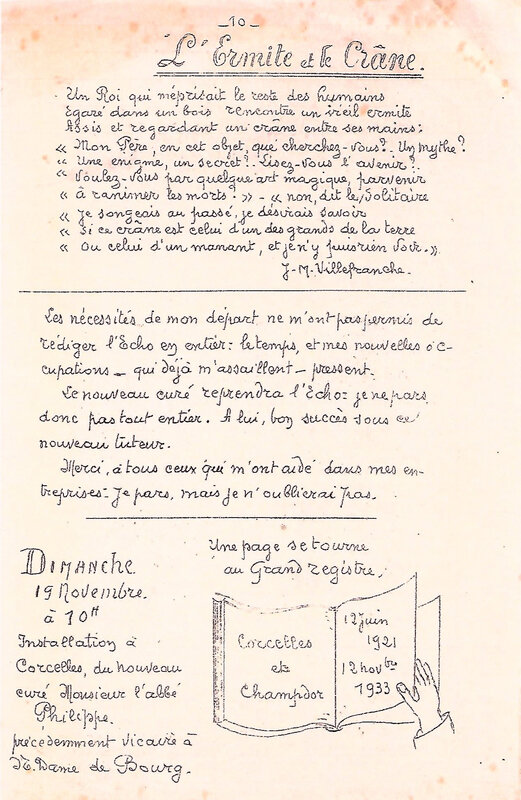 _10_
L'Ermite et le Crâne.
Un Roi qui méprisait le reste des humains
Egaré dans un bois rencontre un vieil ermite
Assis et regardant un crâne entre ses mains:
« Mon Père, en cet objet, que cherchez-vous?. Un mythe?
« Une énigme, un secret?. Lisez-vous l'avenir?.
« Voulez-vous par quelque art magique, parvenir
« à ranimer les morts?» - « non, dit le Solitaire
« Je songeais au passé, je désirais savoir
« Si ce crâne est celui d'un des grands de la terre
« Ou celui d'un manant, et je n'y puis rien voir.»
J-M. Villefranche.
Les nécessités de mon départ ne m'ont pas permis de
rédiger l'Echo en entier: le temps, et mes nouvelles oc-
cupations - qui déjà m'assaillent - pressent.
Le nouveau curé reprendra l'Echo: je ne pars
donc pas tout entier. A lui, bon succès sous ce
nouveau tuteur.
Merci, à tous ceux qui m'ont aidé dans mes en-
treprises. Je pars, mais je n'oublierai pas.
Dimanche
19 Novembre.
à 10H
Installation à
Corcelles, du nouveau
curé Monsieur l'abbé
Philippe.
précédemment vicaire à
N. Dame de Bourg.
Une page se tourne
au Grand registre.
Corcelles
et
Champdor
12 juin
1921
12 novbre
1933